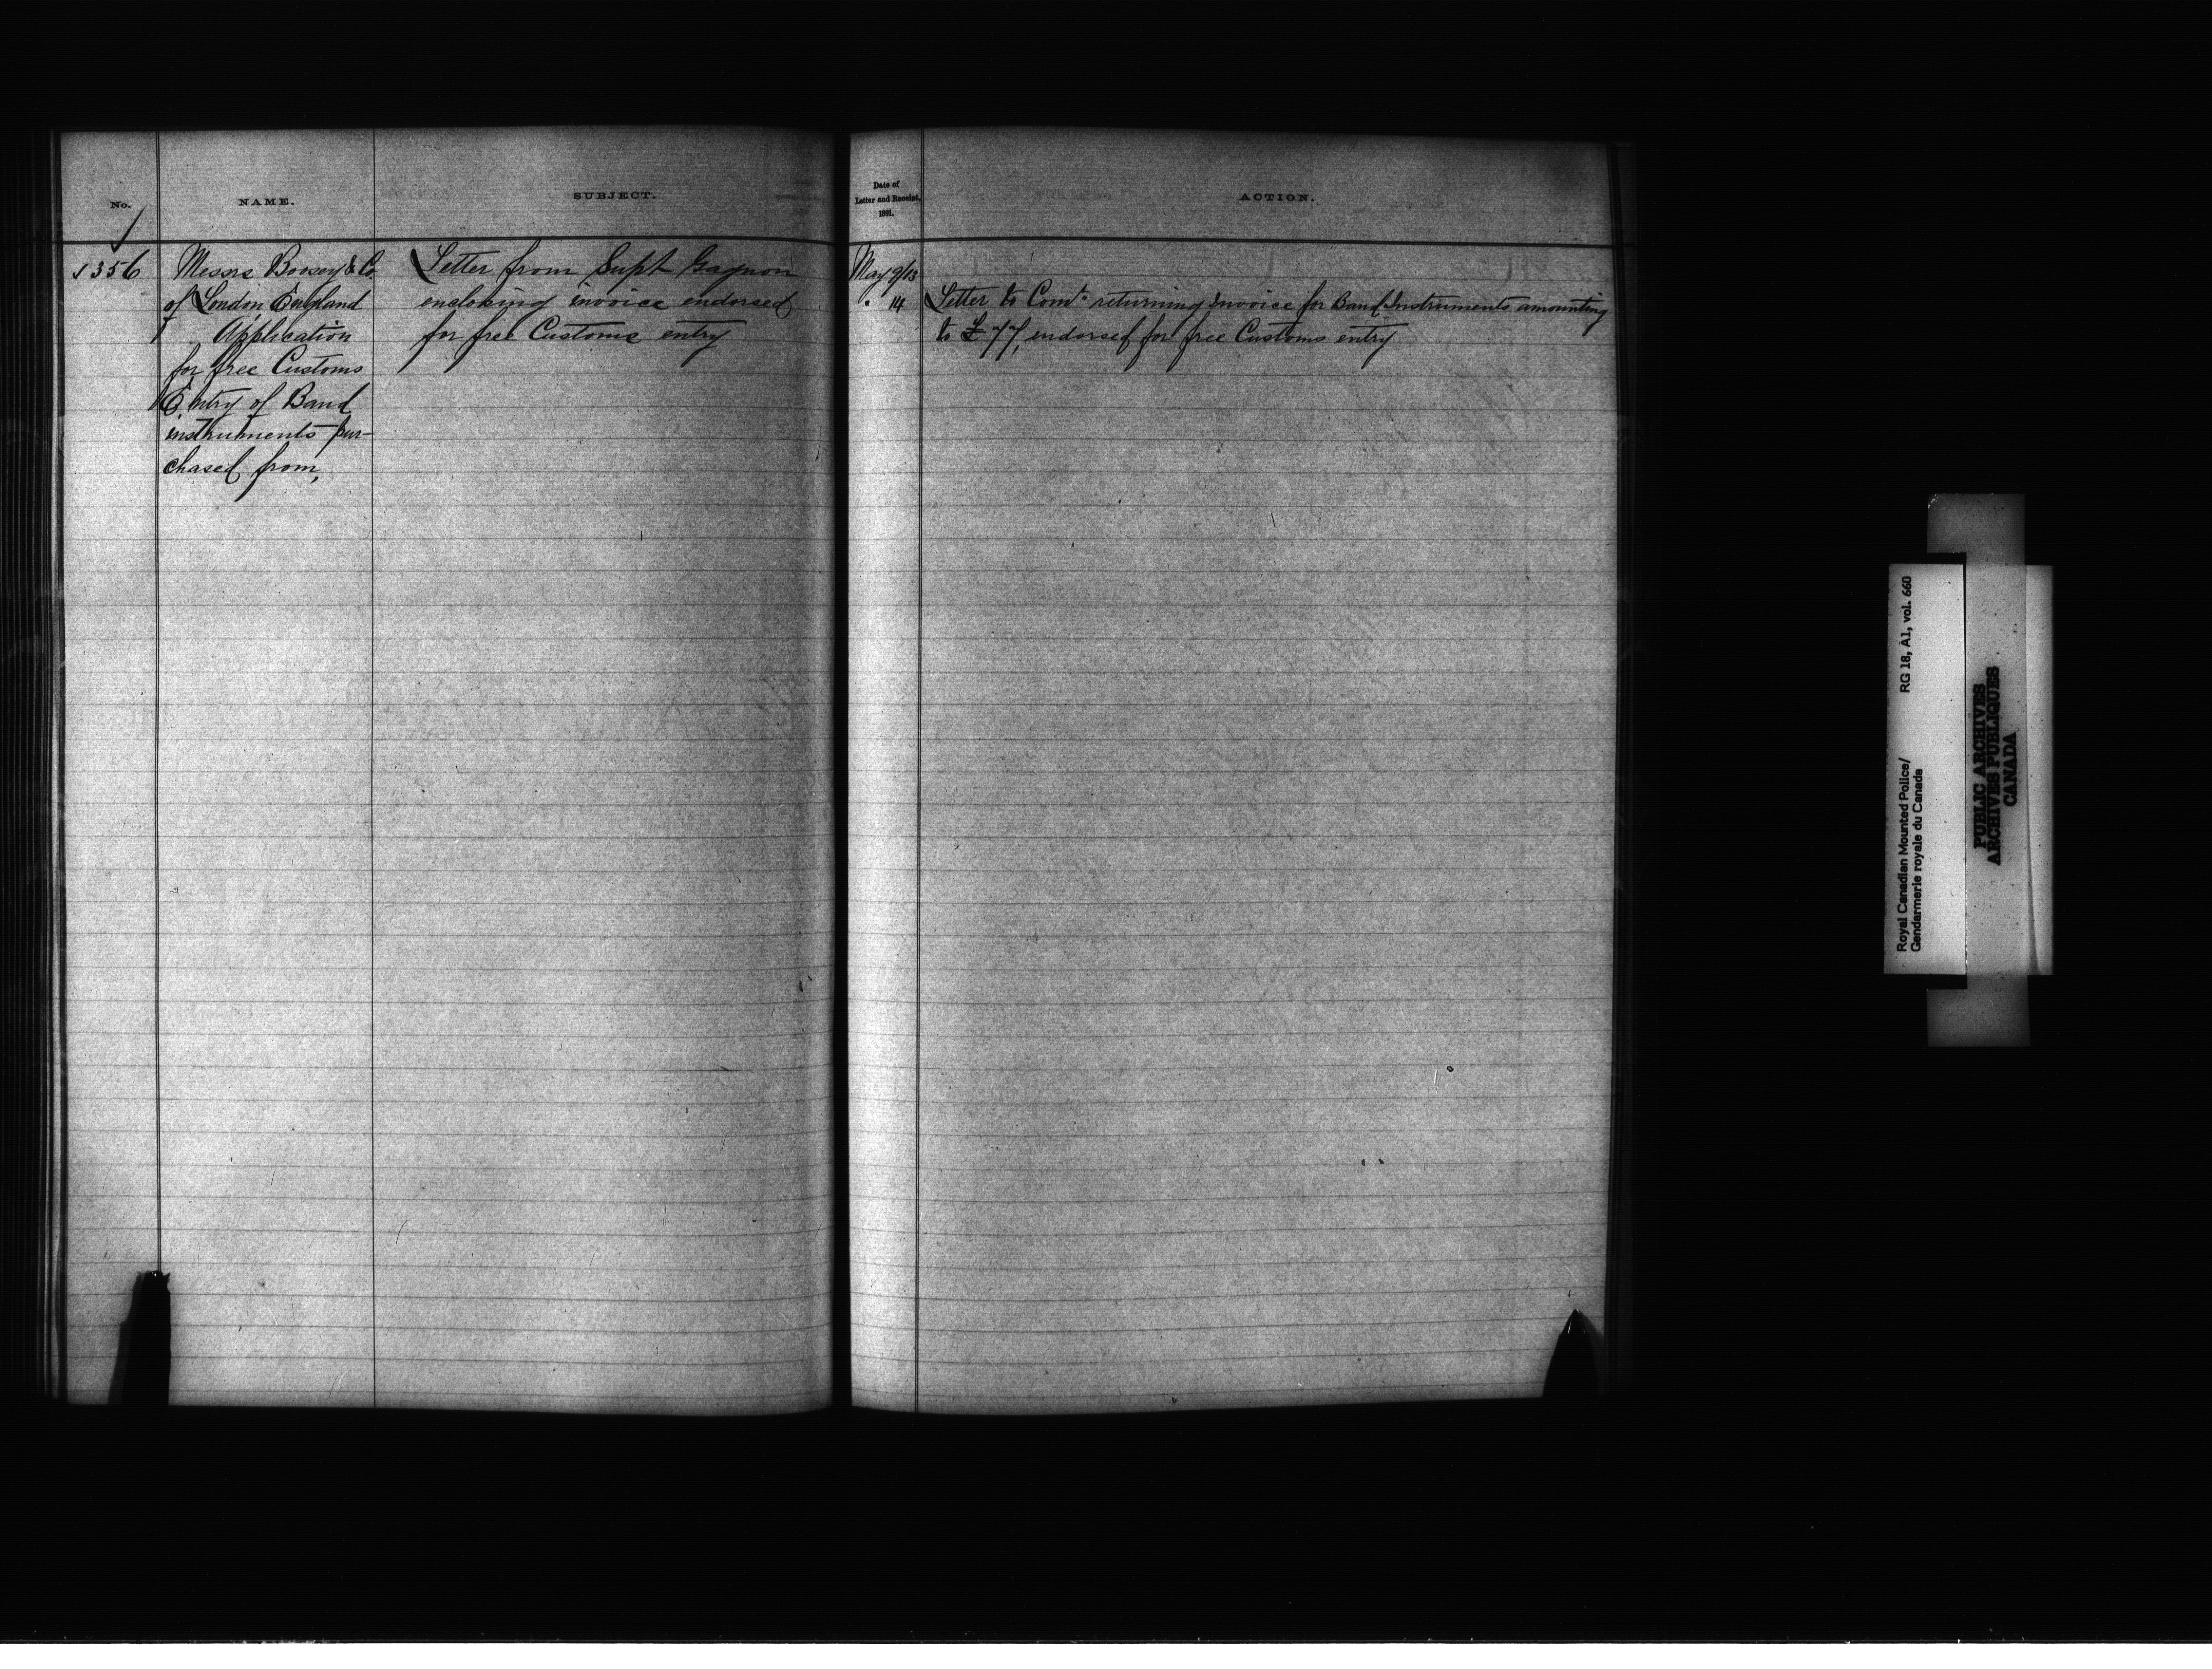 No.
NAME.
SUBJECT.
1356
Messrs Boosey & Co
of London, England
Application
for free Customs
Entry of Band
instruments pur-
chased from,
Letter from Supt Gagnon
enclosing invoice endorsed
for free Customs entry
Date of
Letter and Receipt,
1891.
ACTION.
May 9/13
" 14
Letter to Comr returning Invoice for Band Instruments amounting
to £77, endorsed for free Customs entry
Royal Canadian Mounted Police/ RG 18, A1, vol. 660
Gendarmerie royale du Canada
PUBLIC ARCHIVES
ARCHIVES PUBLIQUES
CANADA